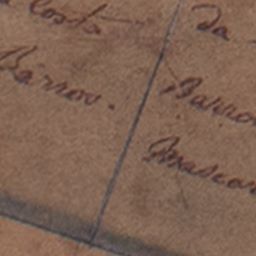 Costa
Barros.
da
Barro
Mascar